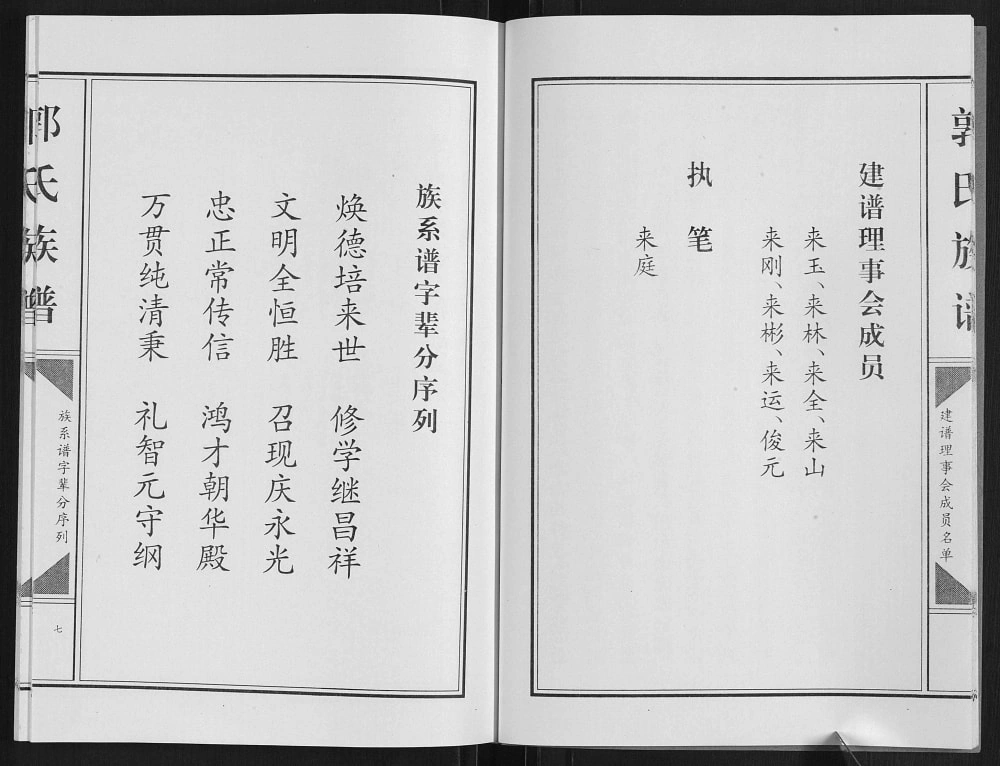 郭氏族谱
建谱理事会成员名单
建谱理事会成员
来玉、来林、来全、来山
来刚、来彬、来运、俊元
执笔
来庭
族系谱字辈分序列
焕德培来世 修学继昌祥
文明全恒胜 召现庆永光
忠正常传信 鸿才朝华殿
万贯纯清秉 礼智元守纲
郭氏族谱
族系谱字辈分序列
七